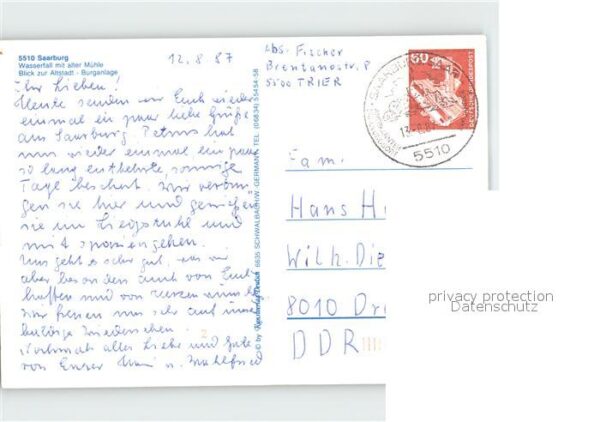 5510 Saarburg
Wasserfall mit alter Mühle
Blick zur Altstadt - Burganlage
12.8.87
Ihr Lieben!
Heute senden wir Euch wieder
einmal ein paar liebe Grüße
aus Saarburg. Petrus hat
uns wieder einmal ein paar
so lang entbehrte, sonnige
Tage beschert. Wir
gen sie hier und genießen
sie im Liegestuhl und
mit spazierengehen.
Uns geht es sehr gut, was wir
aber besonders auch von Euch
hoffen und von Herzen
Wir freuen uns sehr auf unser
Wiedersehen.
Nochmals alles Liebe und Gute
von Eurer u.
© by 6635 SCHWALBACH/W-GERMANY TEL. (06834) 55454-56
Abs. Fischer
Brentanostr. 8
5500 TRIER
60
DEUTSCHE BUNDESPOST
5510
Fam.
Hans H
Wilh. Die
8010 Dr
DDR
privacy protection
Datenschutz